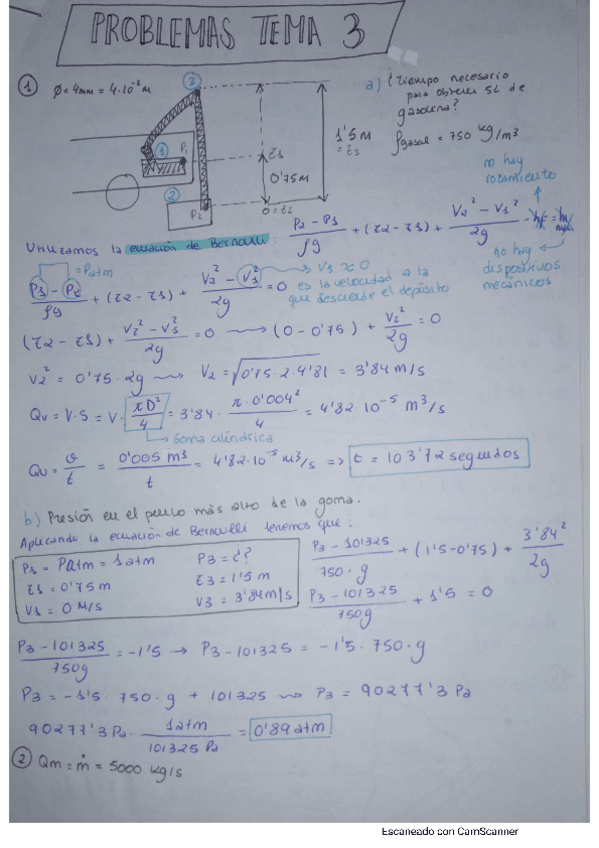 PROBLEMAS TEMA 3
① Ø = 4mm = 4·10⁻³ m
a) ¿Tiempo necesario para obtener 5L de gasolina?
ρgasol = 750 kg/m³
③
① P₁
② P₂
z₁
0'75M
0 = z₂
1'5M = z₃
no hay rozamiento
Utilizamos la ecuación de Bernoulli: (P₂ - P₁)/ρg + (z₂ - z₁) + (V₂² - V₁²)/2g
no hay dispositivos mecánicos
= Patm
(P₁ - P₂)/ρg + (z₂ - z₁) + (V₂² - V₁²)/2g = 0
V₁ ≈ 0 es la velocidad a la que desciende el depósito
(z₂ - z₁) + (V₂² - V₁²)/2g = 0 → (0 - 0'75) + V₂²/2g = 0
V₂² = 0'75 · 2g → V₂ = √(0'75·2·9'81) = 3'84 m/s
Qv = V·S = V· πD²/4 = 3'84 · π·0'004²/4 = 4'82·10⁻⁵ m³/s
Goma cilíndrica
Qv = v/t = 0'005 m³/t = 4'82·10⁻⁵ m³/s => t = 103'72 segundos
b) Presión en el punto más alto de la goma.
Aplicando la ecuación de Bernoulli tenemos que:
P₁ = Patm = 1 atm
z₁ = 0'75 m
V₁ = 0 M/s
P₃ = ¿?
z₃ = 1'5 m
V₃ = 3'84 m/s
(P₃ - 101325)/750·g + (1'5 - 0'75) + 3'84²/2g
(P₃ - 101325)/750g + 1'5 = 0
(P₃ - 101325)/750g = -1'5 → P₃ - 101325 = -1'5 · 750 · g
P₃ = -1'5 · 750 · g + 101325 → P₃ = 90277'3 Pa
90277'3 Pa · 1atm/101325 Pa = 0'89 atm
② Qm = ṁ = 5000 kg/s
Escaneado con CamScanner